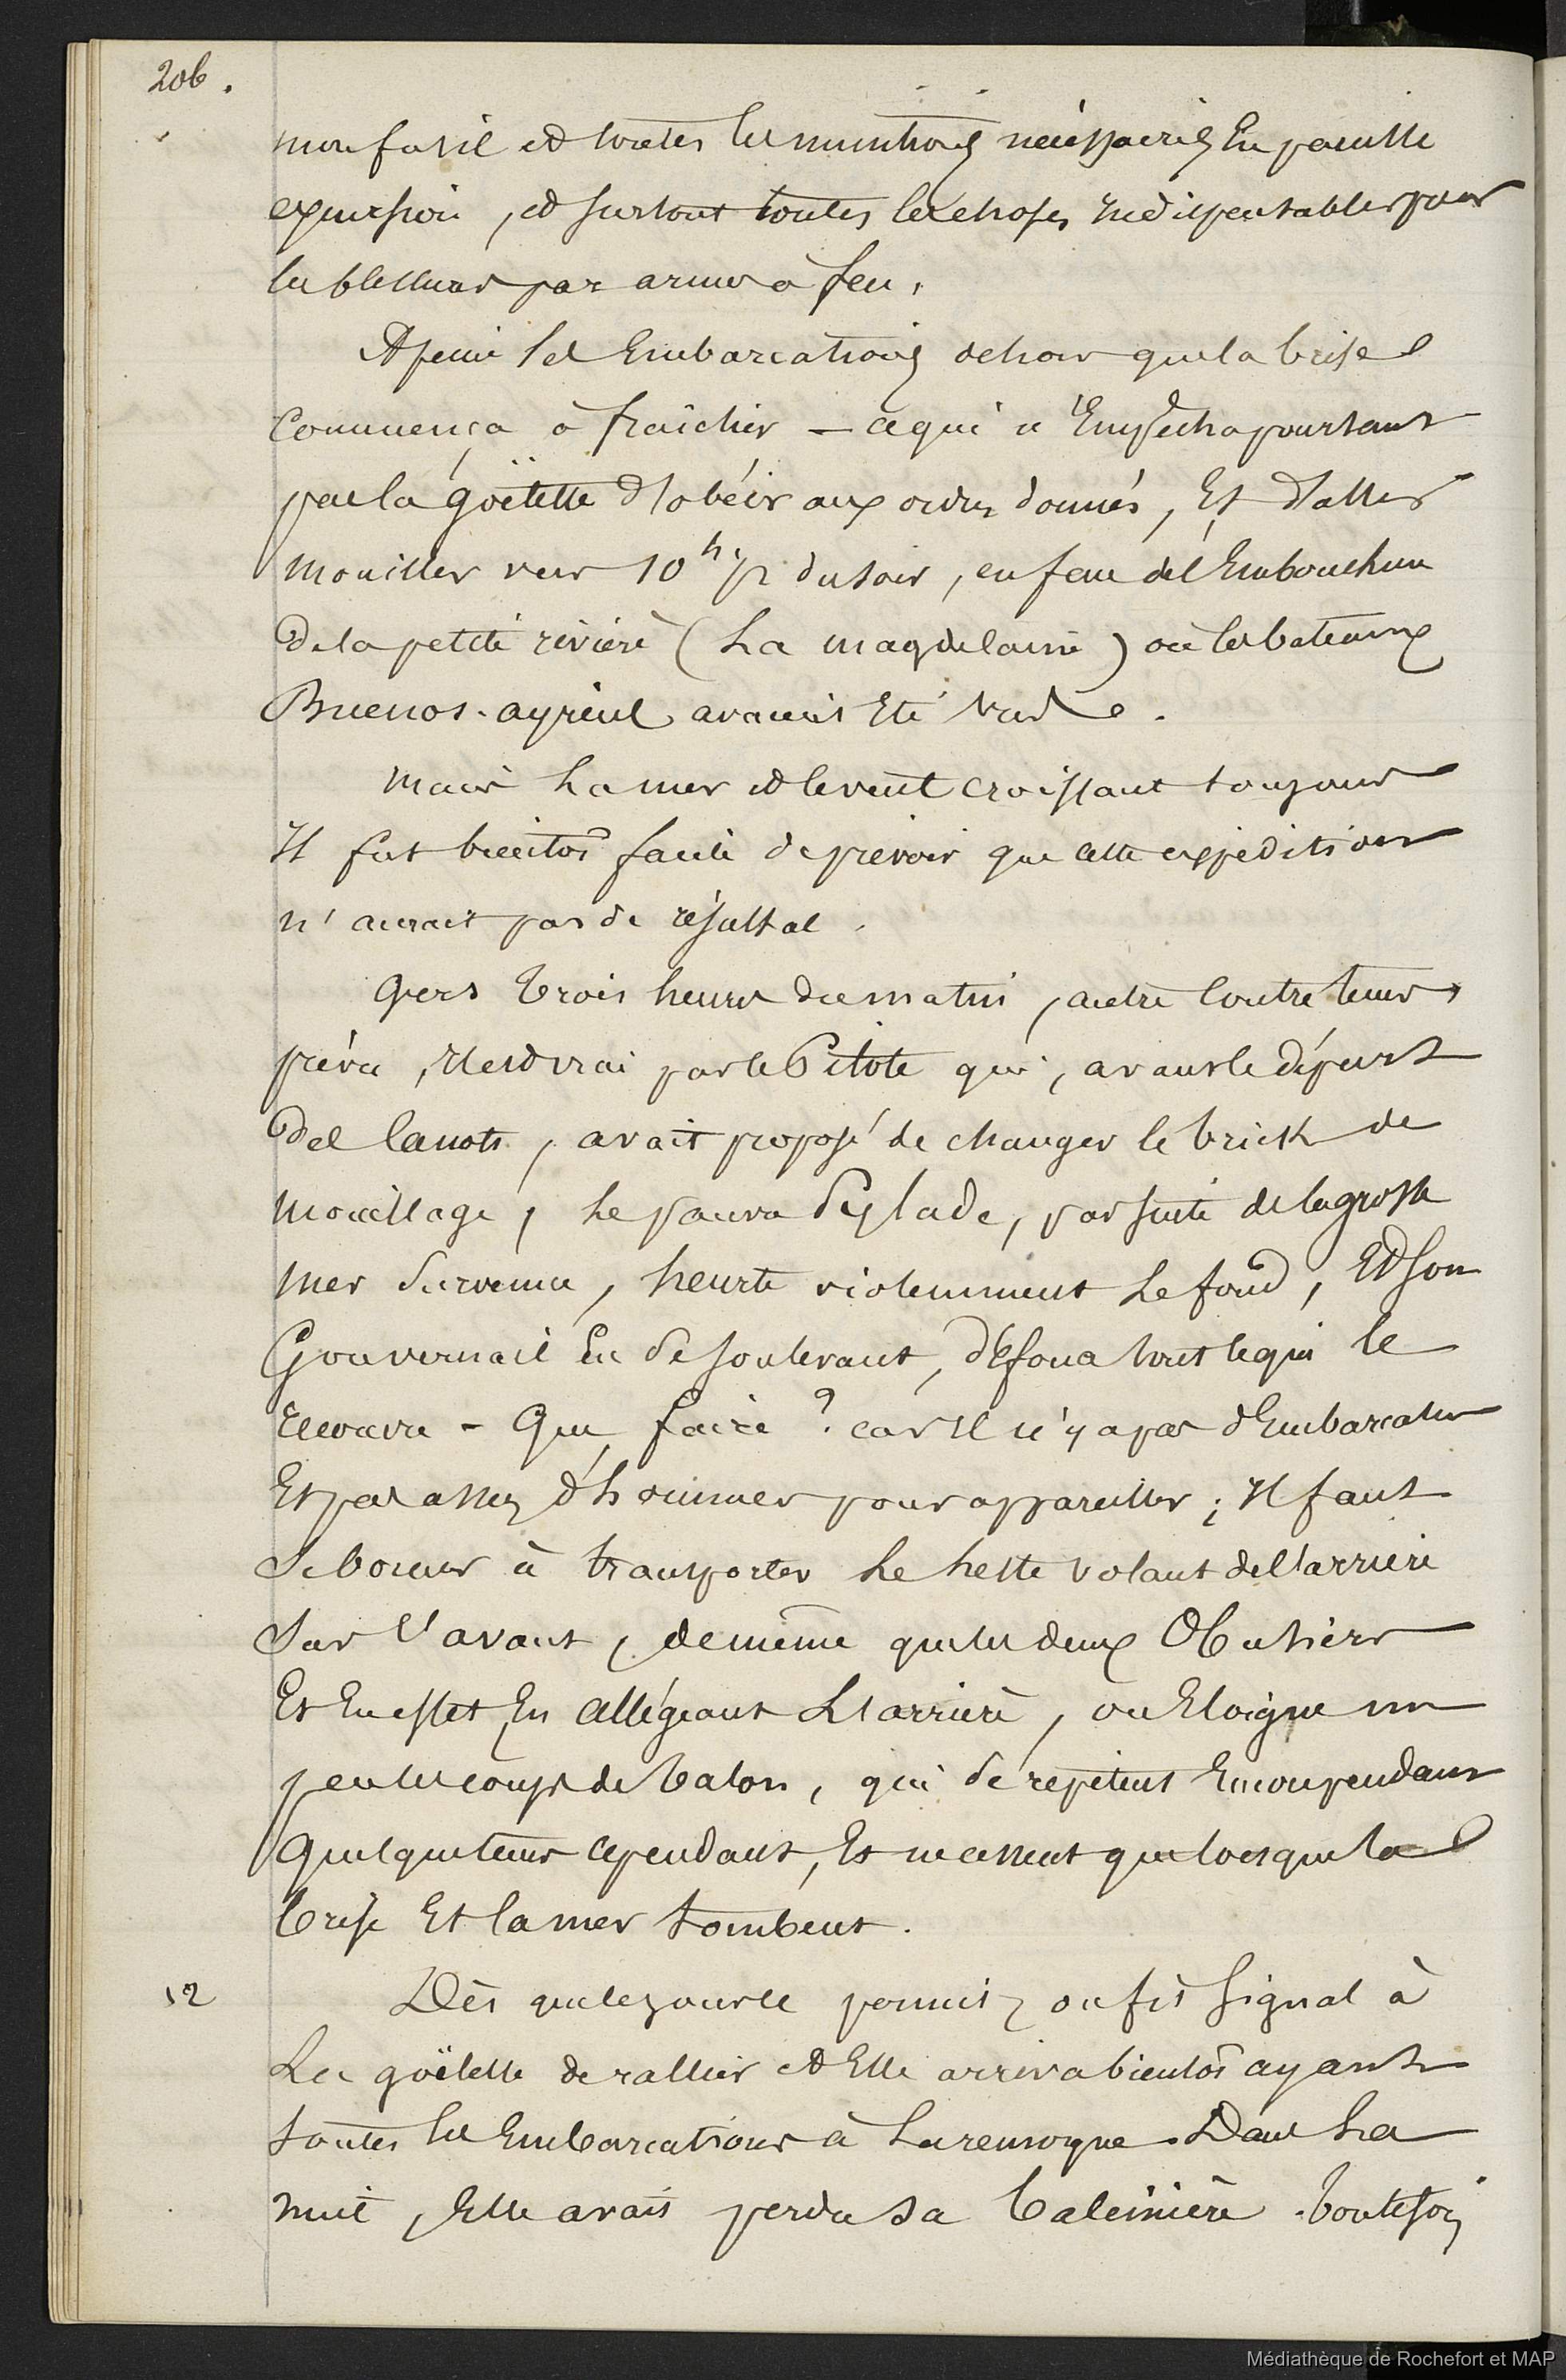 206.
mon fusil et toutes les munitions nécessaires En pareille
excursion, et surtout toutes les choses Indispensables pour
les blessures par armes à feu.
A peine les Embarcations dehors que la brise
Commença à fraîchir – ce qui n'Empêcha pourtant
pas la goëlette d'obéir aux ordres donnés, Et d'aller
Mouiller vers 10h 1/2 du soir, en face de l'Embouchure
De la petite rivière (La magdelaine) où les bateaux
Buenos-ayriens avaient Eté vus.
Mais La mer et le vent croissant toujours
Il fut bientôt facile de prévoir que cette expédition
n'aurait pas de résultat.
Vers trois heures du matin, autre contre tems
prévu, Il est vrai par le Pilote qui, avant le départ
des Canots, avait proposé de changer le brick de
Mouillage, Le pauvre Pylade, par suite de la grosse
Mer Survenue, heurte violemment Le fond, Et Son
Gouvernail En Se Soulevant, défonça tout ce qui le
recouvre – Que faire? car Il n'y a pas d'Embarcation
Et pas assez d'hommes pour appareiller; Il faut
Se borner à transporter Le Leste volant de l'arrière
Sur l'avant, de même que les deux Obusiers
Et En effet En allégeant L'arrière, on Eloigne un
peu les coups de talon, qui Se répètent Encore pendant
Quelque tems cependant, Et ne cessent que lorsque la
brise Et la mer tombent.
12
Dès que le jour le permit, on fit Signal à
La goëlette de rallier et Elle arriva bientôt ayant
toutes les Embarcations à La remorque. Dans La
nuit, Elle avait perdu sa baleinière. toutefois
Médiathèque de Rochefort et MAP